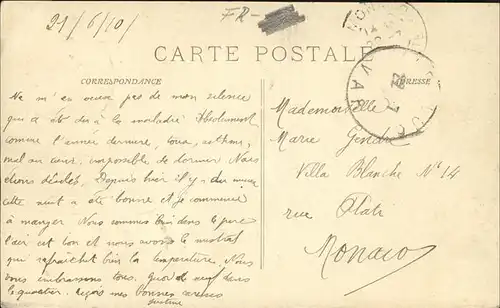 21/6/10/
FR-
CARTE POSTALE
CORRESPONDANCE
ADRESSE
MON
VAR
Ne m'en veux pas de mon silence
qui a été dû à la maladie Absolument
comme l'année dernière, toux, asthme,
mal au cœur. impossible de dormir Nous
étions désolés. Depuis hier il y a du mieux
cette nuit a été bonne et je commence
à manger. Nous sommes bien dans le parc
l'air est bon et nous avons le mistral
qui rafraichit bien la température. Nous
vous embrassons tous. Quoi de neuf dans
le quartier. Reçois mes bonnes caresses
Justine
Mademoiselle
Marie Gendre
Villa Blanche N° 14
rue Plati
Monaco